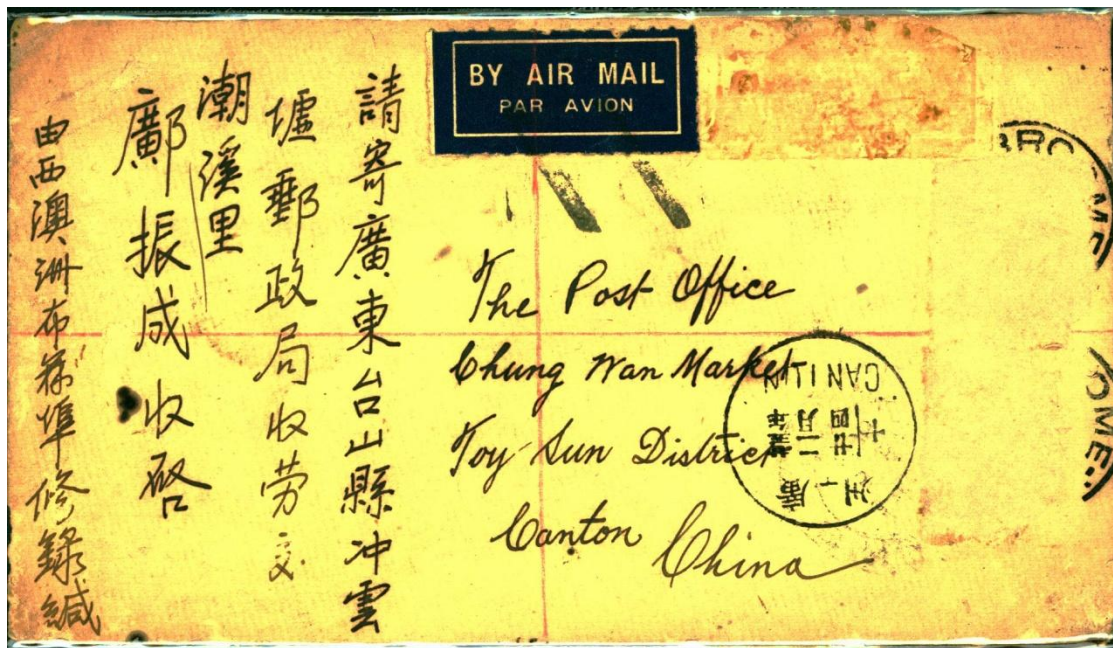 BY AIR MAIL
PAR AVION
請寄廣東台山縣冲雲
墟郵政局收劳交
潮溪里
鄺振成收啓
由西澳洲布 埠修錄緘
The Post Office
Chung Wan Market
Toy Sun District
Canton
China
CANTON
BRO
OME